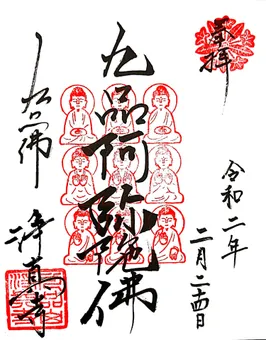 奉拝
令和二年
二月二四日
九品阿弥陀佛
九品佛
浄真寺